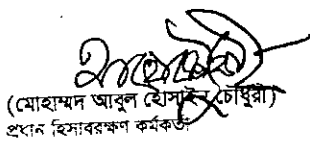 (মোহাম্মদ আবুল হোসাইন চৌধুরী)
প্রধান হিসাবরক্ষণ কর্মকর্তা